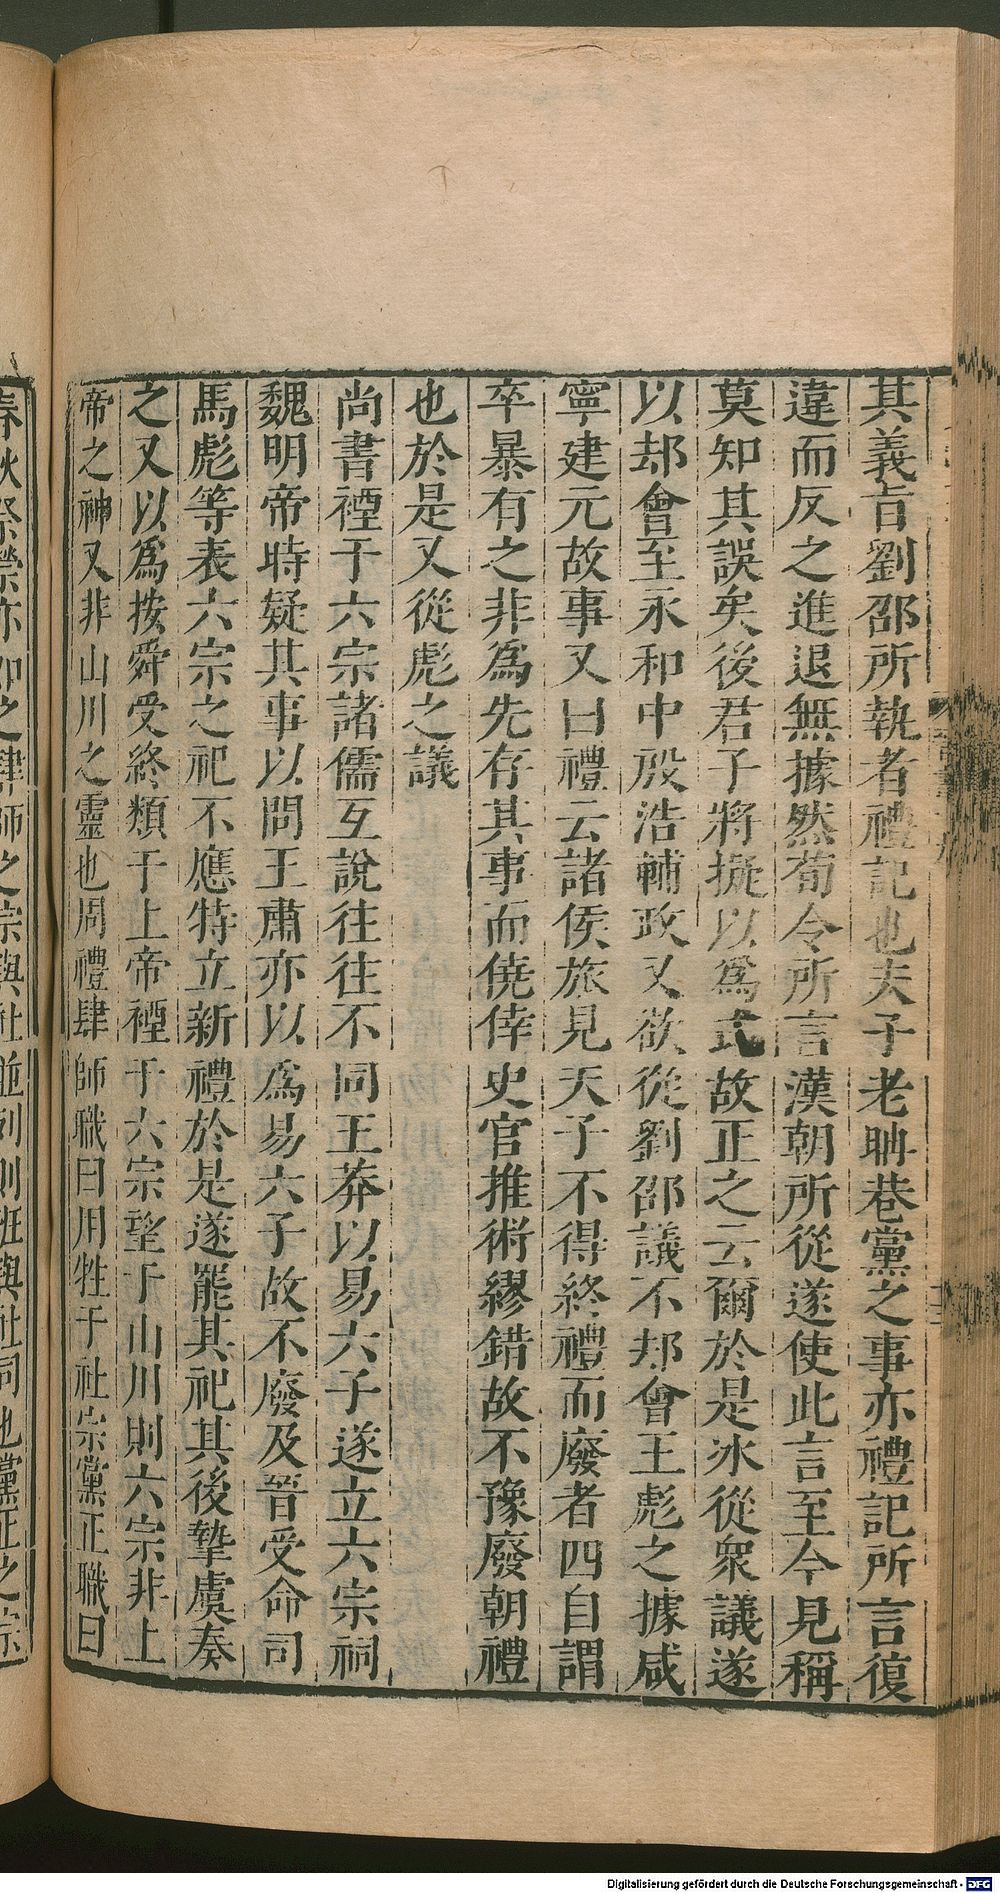 其義旨劉邵所執者禮記也夫子老聃巷黨之事亦禮記所言復
違而反之進退無據然荀令所言漢朝所從遂使此言至今見稱
莫知其誤矣後君子將擬以爲式故正之云爾於是冰從衆議遂
以却會至永和中殷浩輔政又欲從劉邵議不却會王彪之據咸
寧建元故事又曰禮云諸侯旅見天子不得終禮而廢者四自謂
卒暴有之非爲先存其事而僥倖史官推術繆錯故不豫廢朝禮
也於是又從彪之議
尚書禋于六宗諸儒互說往往不同王莽以易六子遂立六宗祠
魏明帝時疑其事以問王肅亦以爲易六子故不廢及晉受命司
馬彪等表六宗之祀不應特立新禮於是遂罷其祀其後摯虞奏
之又以爲按舜受終類于上帝禋于六宗望于山川則六宗非上
帝之神又非山川之靈也周禮肆師職曰用牲于社宗黨正職曰
春秋祭禜亦如之肆師之宗與社並列則班與社同也黨正之宗
Digitalisierung gefördert durch die Deutsche Forschungsgemeinschaft - DFG